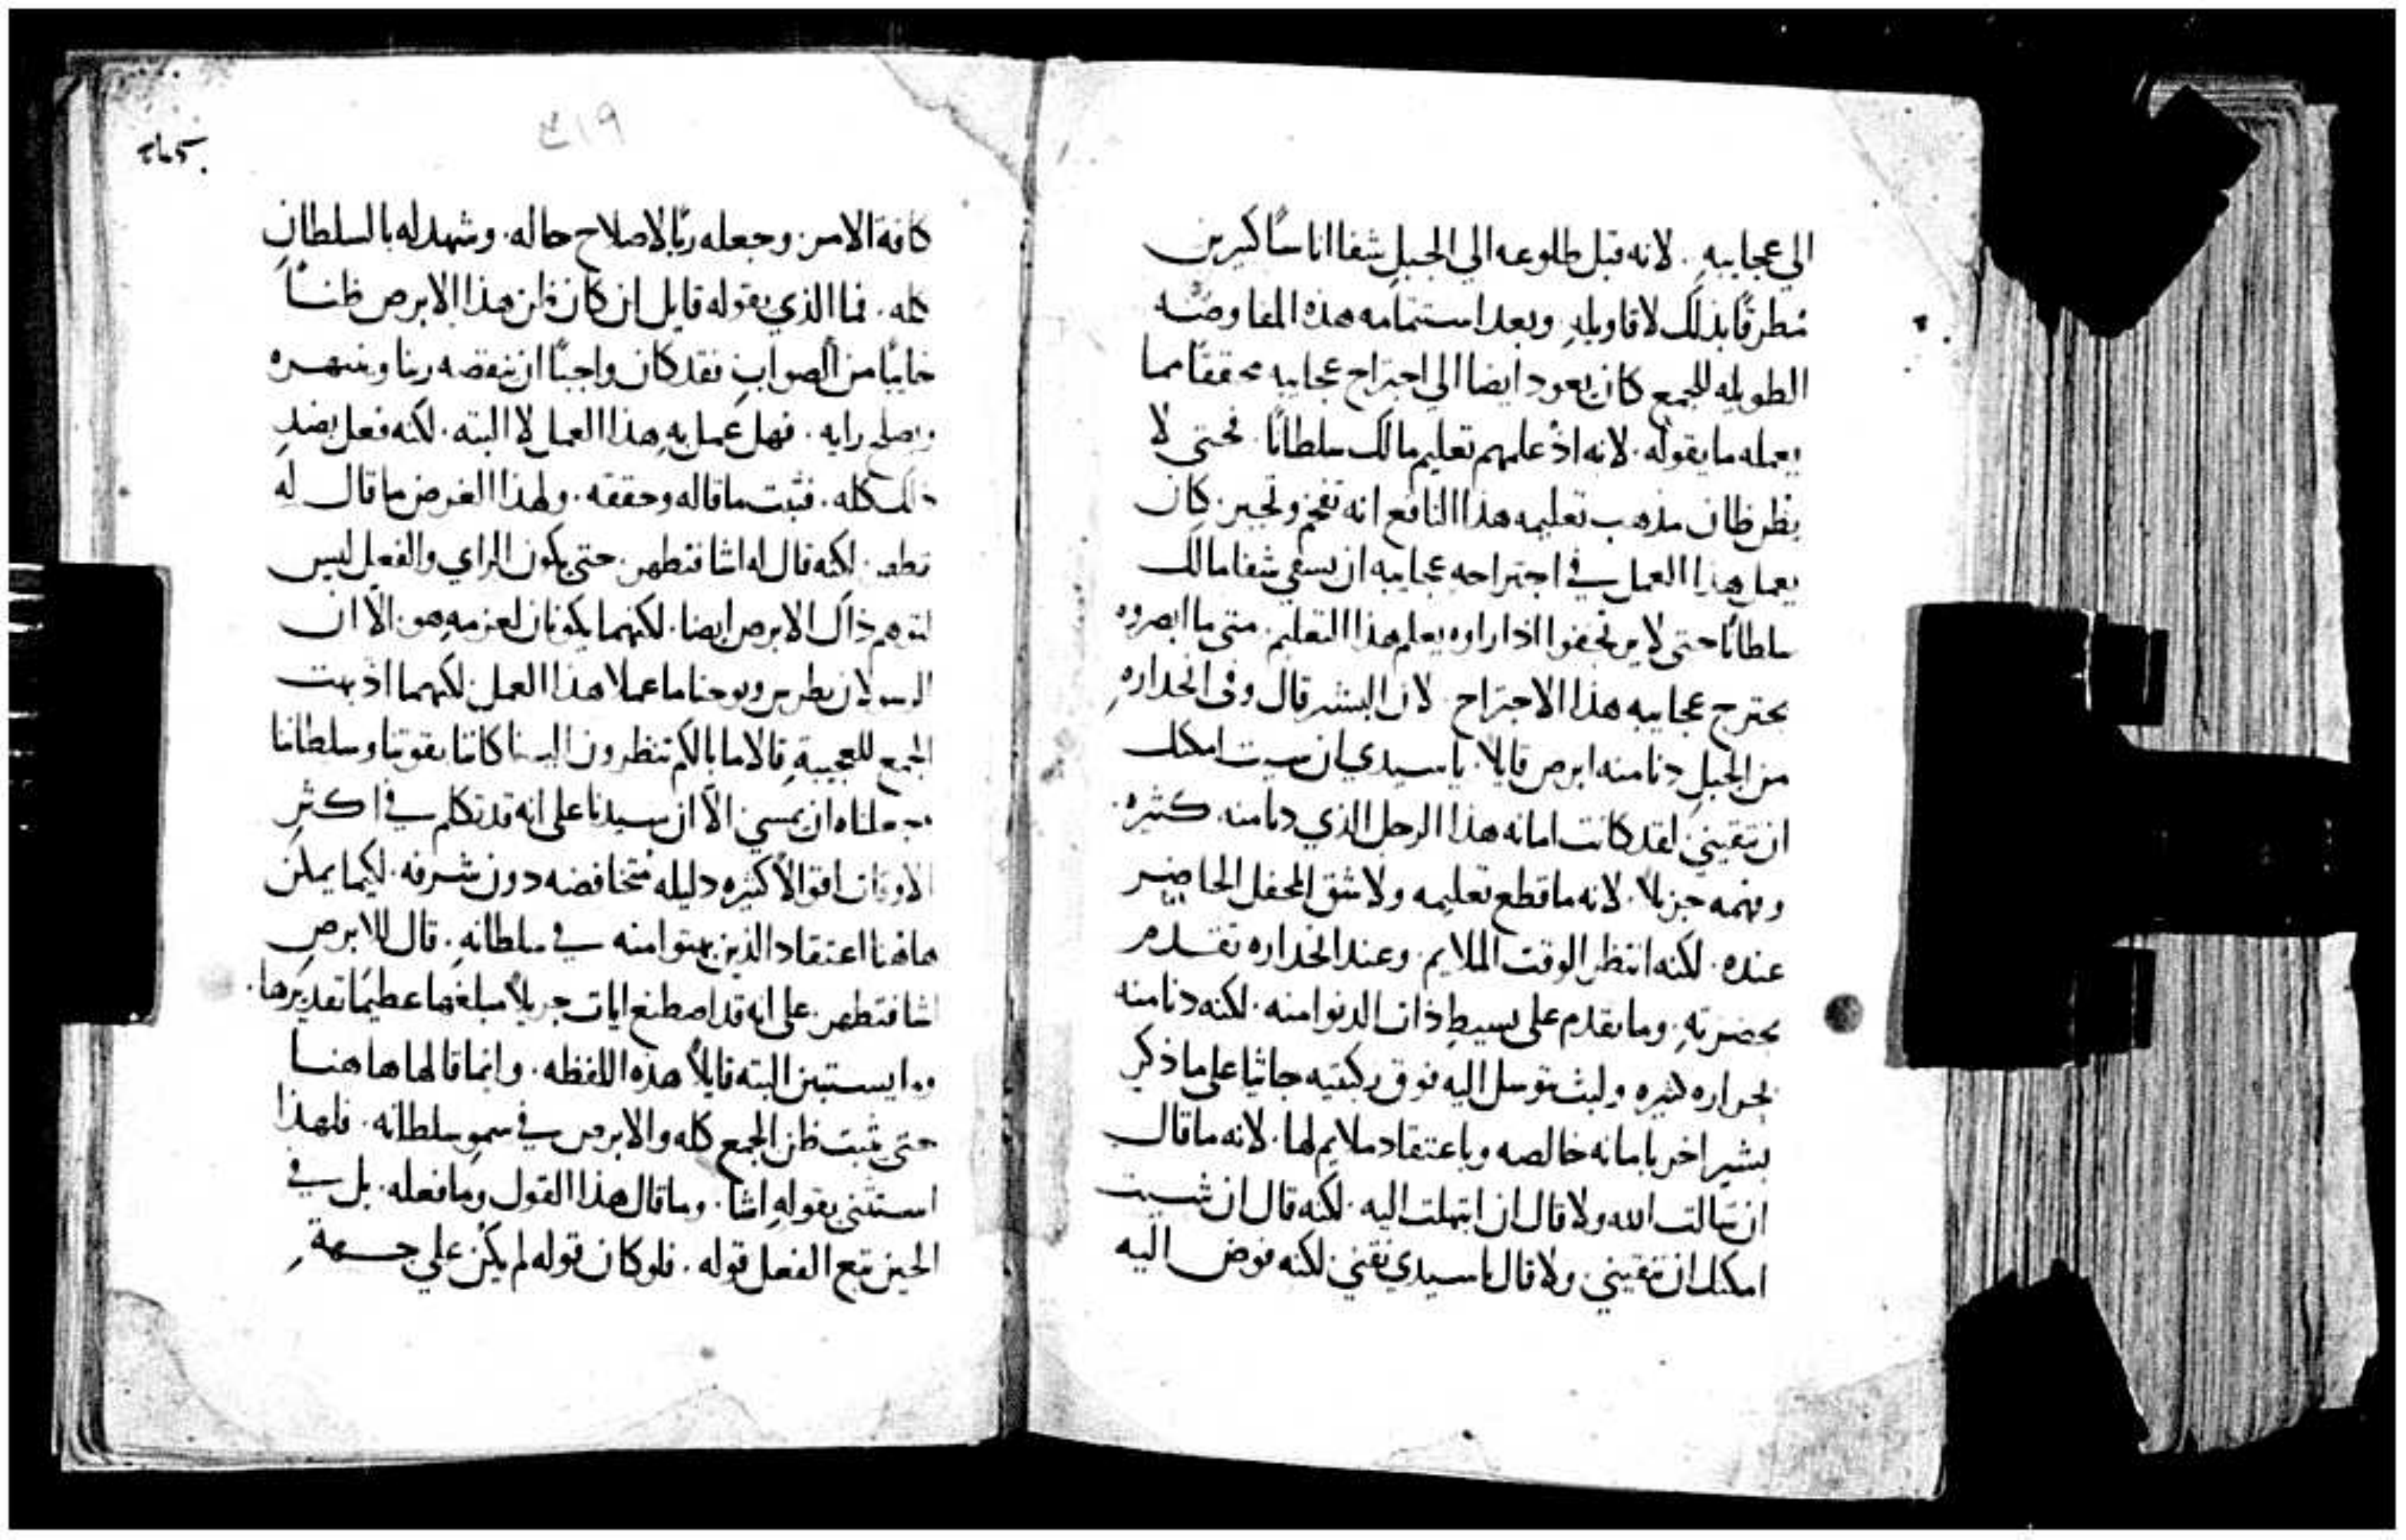 الي عجايبه . لانه قبل طلوعه الي الجبل شفا اناسًا كبيرين
متطرقًا بذلك لاقاويله . وبعد استتمامه هذه المفاوضه
الطويله للجمع كان يعود ايضا الي اجتراح عجايبه محققًا مما
يعمله ما يقوله . لانه اذ علمهم تعليم مالك سلطانًا . فحتي لا
يظن ظان مذهب تعليمه هذا النافع انه تفخم وتجبر . كان
يعمل هذا العمل في اجتراحه عجايبه ان يشفي شفا مالك
سلطانًا حتي لا يرتجفوا اذا راوه يعلم هذا التعليم . متي ما ابصروه
يجترح عجايبه هذا الاجتراح . لان البشير قال وفي انحداره
من الجبل دنا منه ابرص قايلا . يا سيدي ان شيت امكنك
ان تنقيني لقد كانت امانه هذا الرجل الذي دنا منه . كثيره
وفهمه جزيلا . لانه ما قطع تعليمه ولا شق المحفل الحاضر
عنده . لكنه انتظر الوقت الملايم . وعند انحداره تقدم
بحضرته . وما تقدم علي بسيط ذات الدنو منه . لكنه دنا منه
بحراره كثيره ولبث يتوسل اليه فوق ركبتيه جاثيا علي ما ذكر
بشير اخر بامانه خالصه وباعتقاد ملايم لها . لانه ما قال
ان سالت الله ولا قال ان ابتهلت اليه . لكنه قال ان شيت
امكنك ان تنقيني . ولا قال يا سيدي نقني لكنه فوض اليه
٤١٩
كافة الامر . وجعله ربًا لاصلاح حاله . وشهد له بالسلطان
كله . فما الذي يقوله قايل ان كان ظن هذا الابرص ظنًا
خايبًا من الصواب فقد كان واجبًا ان ينقضه ربنا وينتهره
ويصلح رايه . فهل عمل به هذا العمل لا البته . لكنه فعل بضد
ذلك كله . فثبت ما قاله وحققه . ولهذا الغرض ما قال له
تطهر . لكنه قال له اشا فتطهر . حتي يكون الراي والفعل ليس
لتوهم ذاك الابرص ايضا . لكنهما يكونان لعزمه هو . الا ان
الرسولان بطرس ويوحنا ما عملا هذا العمل . لكنهما اذ بهت
الجمع للعجيبة قالا ما بالكم تنظرون الينا كاننا بقوتنا وسلطاننا
جعلناه ان يمشي الا ان سيدنا علي انه قد تكلم في اكثر
الاوقات اقوالا كثيره دليله متخافضه دون شرفه . لكيما يمكن
هاهنا اعتقاد الذين بهتوا منه في سلطانه . قال للابرص
اشا فتطهر . علي انه قد اصطنع ايات جزيلا مبلغها عظيمًا تقديرها .
وما يستبين البته قايلا هذه اللفظه . وانما قالها هاهنا
حتي يثبت ظن الجمع كله والابرص في سمو سلطانه . فلهذا
استثني بقوله اشا . وما قال هذا القول وما فعله . بل في
الحين تبع الفعل قوله . فلو كان قوله لم يكن علي جهة